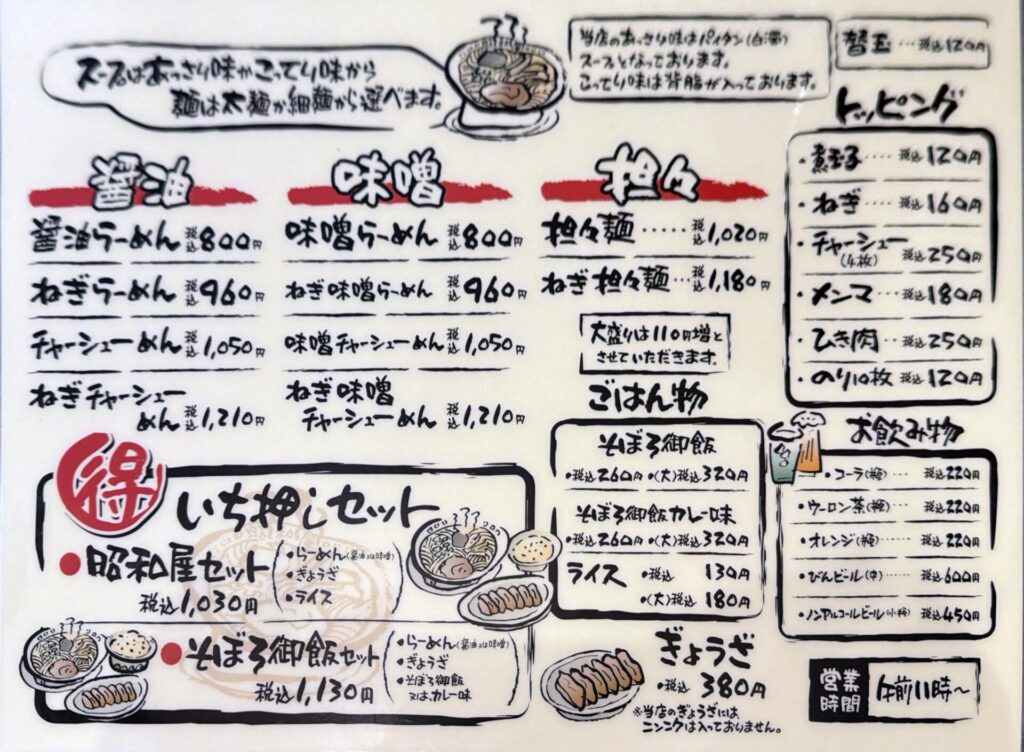 スープはあっさり味かこってり味から
麺は太麺か細麺から選べます。
当店のあっさり味はパイタン(白湯)
スープとなっております。
こってり味は背脂が入っております。
替玉…税込120円
トッピング
・煮玉子‥‥税込120円
・ねぎ‥‥税込160円
・チャーシュー(4枚)税込250円
・メンマ‥‥税込180円
・ひき肉‥‥税込250円
・のり10枚 税込120円
醤油
醤油らーめん 税込800円
ねぎらーめん 税込960円
チャーシューめん 税込1,050円
ねぎチャーシュー
めん 税込1,210円
味噌
味噌らーめん 税込800円
ねぎ味噌らーめん 税込960円
味噌チャーシューめん 税込1,050円
ねぎ味噌
チャーシューめん 税込1,210円
担々
担々麺‥‥‥税込1,020円
ねぎ担々麺…税込1,180円
大盛りは110円増と
させていただきます。
ごはん物
そぼろ御飯
・税込260円 ・(大)税込320円
そぼろ御飯カレー味
・税込260円 ・(大)税込320円
ライス ・税込 130円
・(大)税込 180円
お飲み物
・コーラ(瓶)‥‥税込220円
・ウーロン茶(瓶)‥‥税込220円
・オレンジ(瓶)‥‥税込220円
・びんビール(中)‥‥税込600円
・ノンアルコールビール(小瓶)‥税込450円
得
いち押しセット
●昭和屋セット
税込1,030円
・らーめん(醤油又は味噌)
・ぎょうざ
・ライス
●そぼろ御飯セット
税込1,130円
・らーめん(醤油又は味噌)
・ぎょうざ
・そぼろ御飯
又は、カレー味
ぎょうざ
・税込 380円
※当店のぎょうざには、
ニンニクは入っておりません。
営業
時間
午前11時〜